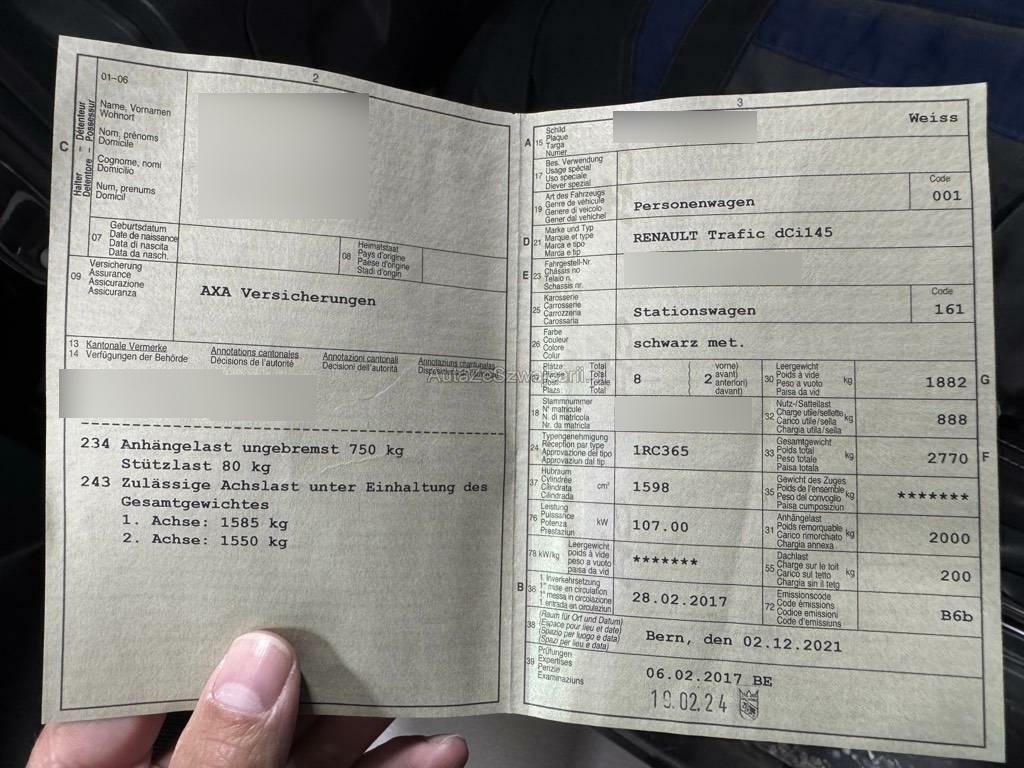 2
C
Halter - Détenteur
Detentore - Possessur
01-06
Name, Vornamen
Wohnort
Nom, prénoms
Domicile
Cognome, nomi
Domicilio
Num, prenums
Domicil
07
Geburtsdatum
Date de naissance
Data di nascita
Data da nasch.
08
Heimatstaat
Pays d'origine
Paese d'origine
Stadi d'origin
09
Versicherung
Assurance
Assicurazione
Assicuranza
AXA Versicherungen
13 Kantonale Vermerke
14 Verfügungen der Behörde
Annotations cantonales
Décisions de l'autorité
Annotazioni cantonali
Decisioni dell'autorità
Annotaziuns chantunalas
234 Anhängelast ungebremst 750 kg
Stützlast 80 kg
243 Zulässige Achslast unter Einhaltung des
Gesamtgewichtes
1. Achse: 1585 kg
2. Achse: 1550 kg
3
A 15
Schild
Plaque
Targa
Numer
Weiss
17
Bes. Verwendung
Usage spécial
Uso speciale
Diever spezial
19
Art des Fahrzeugs
Genre de véhicule
Genere di veicolo
Gener dal vehichel
Personenwagen
Code
001
D 21
Marke und Typ
Marque et type
Marca e tipo
Marca e tip
RENAULT Trafic dCi145
E 23
Fahrgestell-Nr.
Châssis no
Telaio n.
Schassis nr.
25
Karosserie
Carrosserie
Carrozzeria
Carossaria
Stationswagen
Code
161
26
Farbe
Couleur
Colore
Colur
schwarz met.
Plätze Total
Total
Totale
Plazs Total
8
2
vorne)
avant)
anteriori)
davant)
30
Leergewicht
Poids à vide
Peso a vuoto
Paisa da vid
kg
1882
G
18
Stammnummer
N° matricule
N. di matricola
Nr. da matricla
32
Nutz-/Sattellast
Charge utile/sellette
Carico utile/sella
Chargia utila/sella
kg
888
24
Typengenehmigung
Réception par type
Approvazione del tipo
Approvaziun dal tip
1RC365
33
Gesamtgewicht
Poids total
Peso totale
Paisa totala
kg
2770
F
37
Hubraum
Cylindrée
Cilindrata
Cilindrada
cm³
1598
35
Gewicht des Zuges
Poids de l'ensemble
Peso del convoglio
Paisa cumposiziun
kg
*******
76
Leistung
Puissance
Potenza
Prestaziun
kW
107.00
31
Anhängelast
Poids remorquable
Carico rimorchiato
Chargia annexa
kg
2000
78 kW/kg
Leergewicht
poids à vide
peso a vuoto
paisa da vid
*******
55
Dachlast
Charge sur le toit
Carico sul tetto
Chargia sin il tetg
kg
200
B 36
1. Inverkehrsetzung
1re mise en circulation
1a messa in circolazione
1. entrada en circulaziun
28.02.2017
72
Emissionscode
Code émissions
Codice emissioni
Code d'emissiuns
B6b
38
(Raum für Ort und Datum)
(Espace pour lieu et date)
(Spazio per luogo e data)
(Spazi per lieu e data)
Bern, den 02.12.2021
39
Prüfungen
Expertises
Perizie
Examinaziuns
06.02.2017 BE
19.02.24
AutazeSzwajcarii.